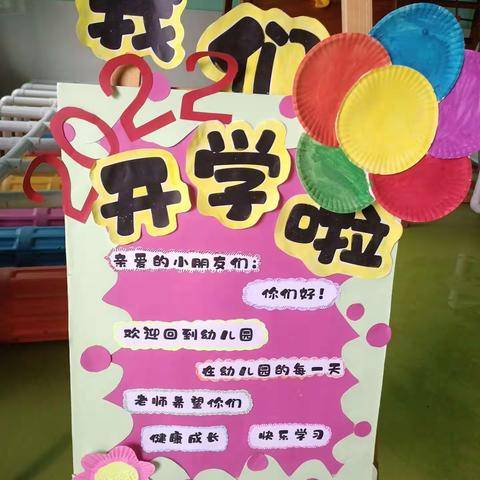 我们
2022
开学啦
亲爱的小朋友们：
你们好！
欢迎回到幼儿园
在幼儿园的每一天
老师希望你们
健康成长
快乐学习